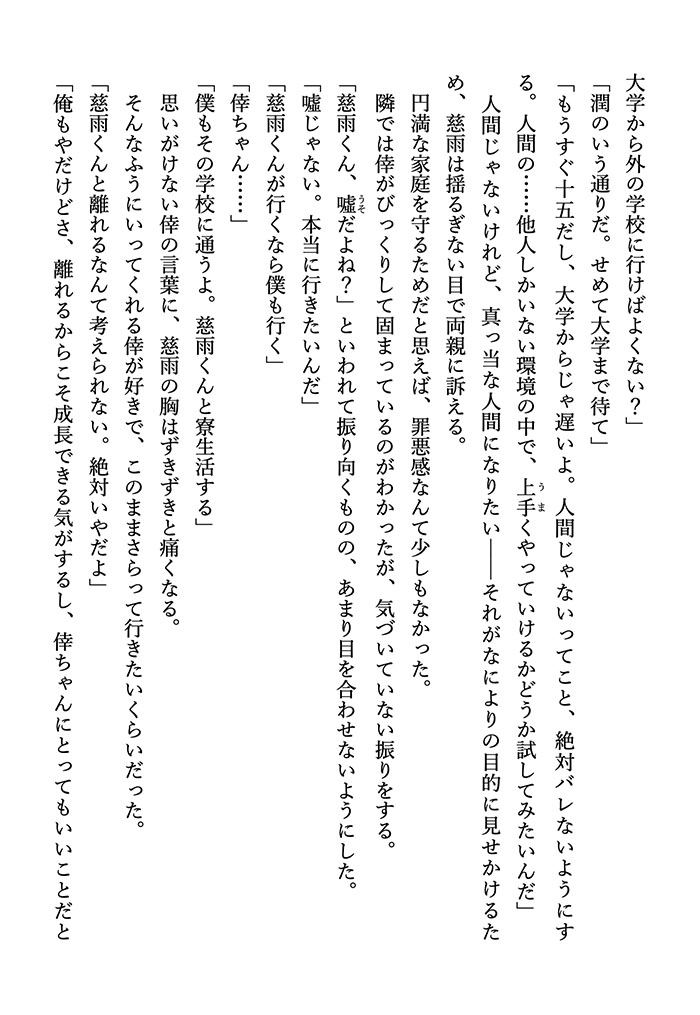 大学から外の学校に行けばよくない？」
「潤のいう通りだ。せめて大学まで待て」
「もうすぐ十五だし、大学からじゃ遅いよ。人間じゃないってこと、絶対バレないようにす
る。人間の……他人しかいない環境の中で、上手くやっていけるかどうか試してみたいんだ」
人間じゃないけれど、真っ当な人間になりたい――それがなによりの目的に見せかけるた
め、慈雨は揺るぎない目で両親に訴える。
円満な家庭を守るためだと思えば、罪悪感なんて少しもなかった。
隣では倖がびっくりして固まっているのがわかったが、気づいていない振りをする。
「慈雨くん、嘘だよね？」といわれて振り向くものの、あまり目を合わせないようにした。
「嘘じゃない。本当に行きたいんだ」
「慈雨くんが行くなら僕も行く」
「倖ちゃん……」
「僕もその学校に通うよ。慈雨くんと寮生活する」
思いがけない倖の言葉に、慈雨の胸はずきずきと痛くなる。
そんなふうにいってくれる倖が好きで、このままさらって行きたいくらいだった。
「慈雨くんと離れるなんて考えられない。絶対いやだよ」
「俺もやだけどさ、離れるからこそ成長できる気がするし、倖ちゃんにとってもいいことだと